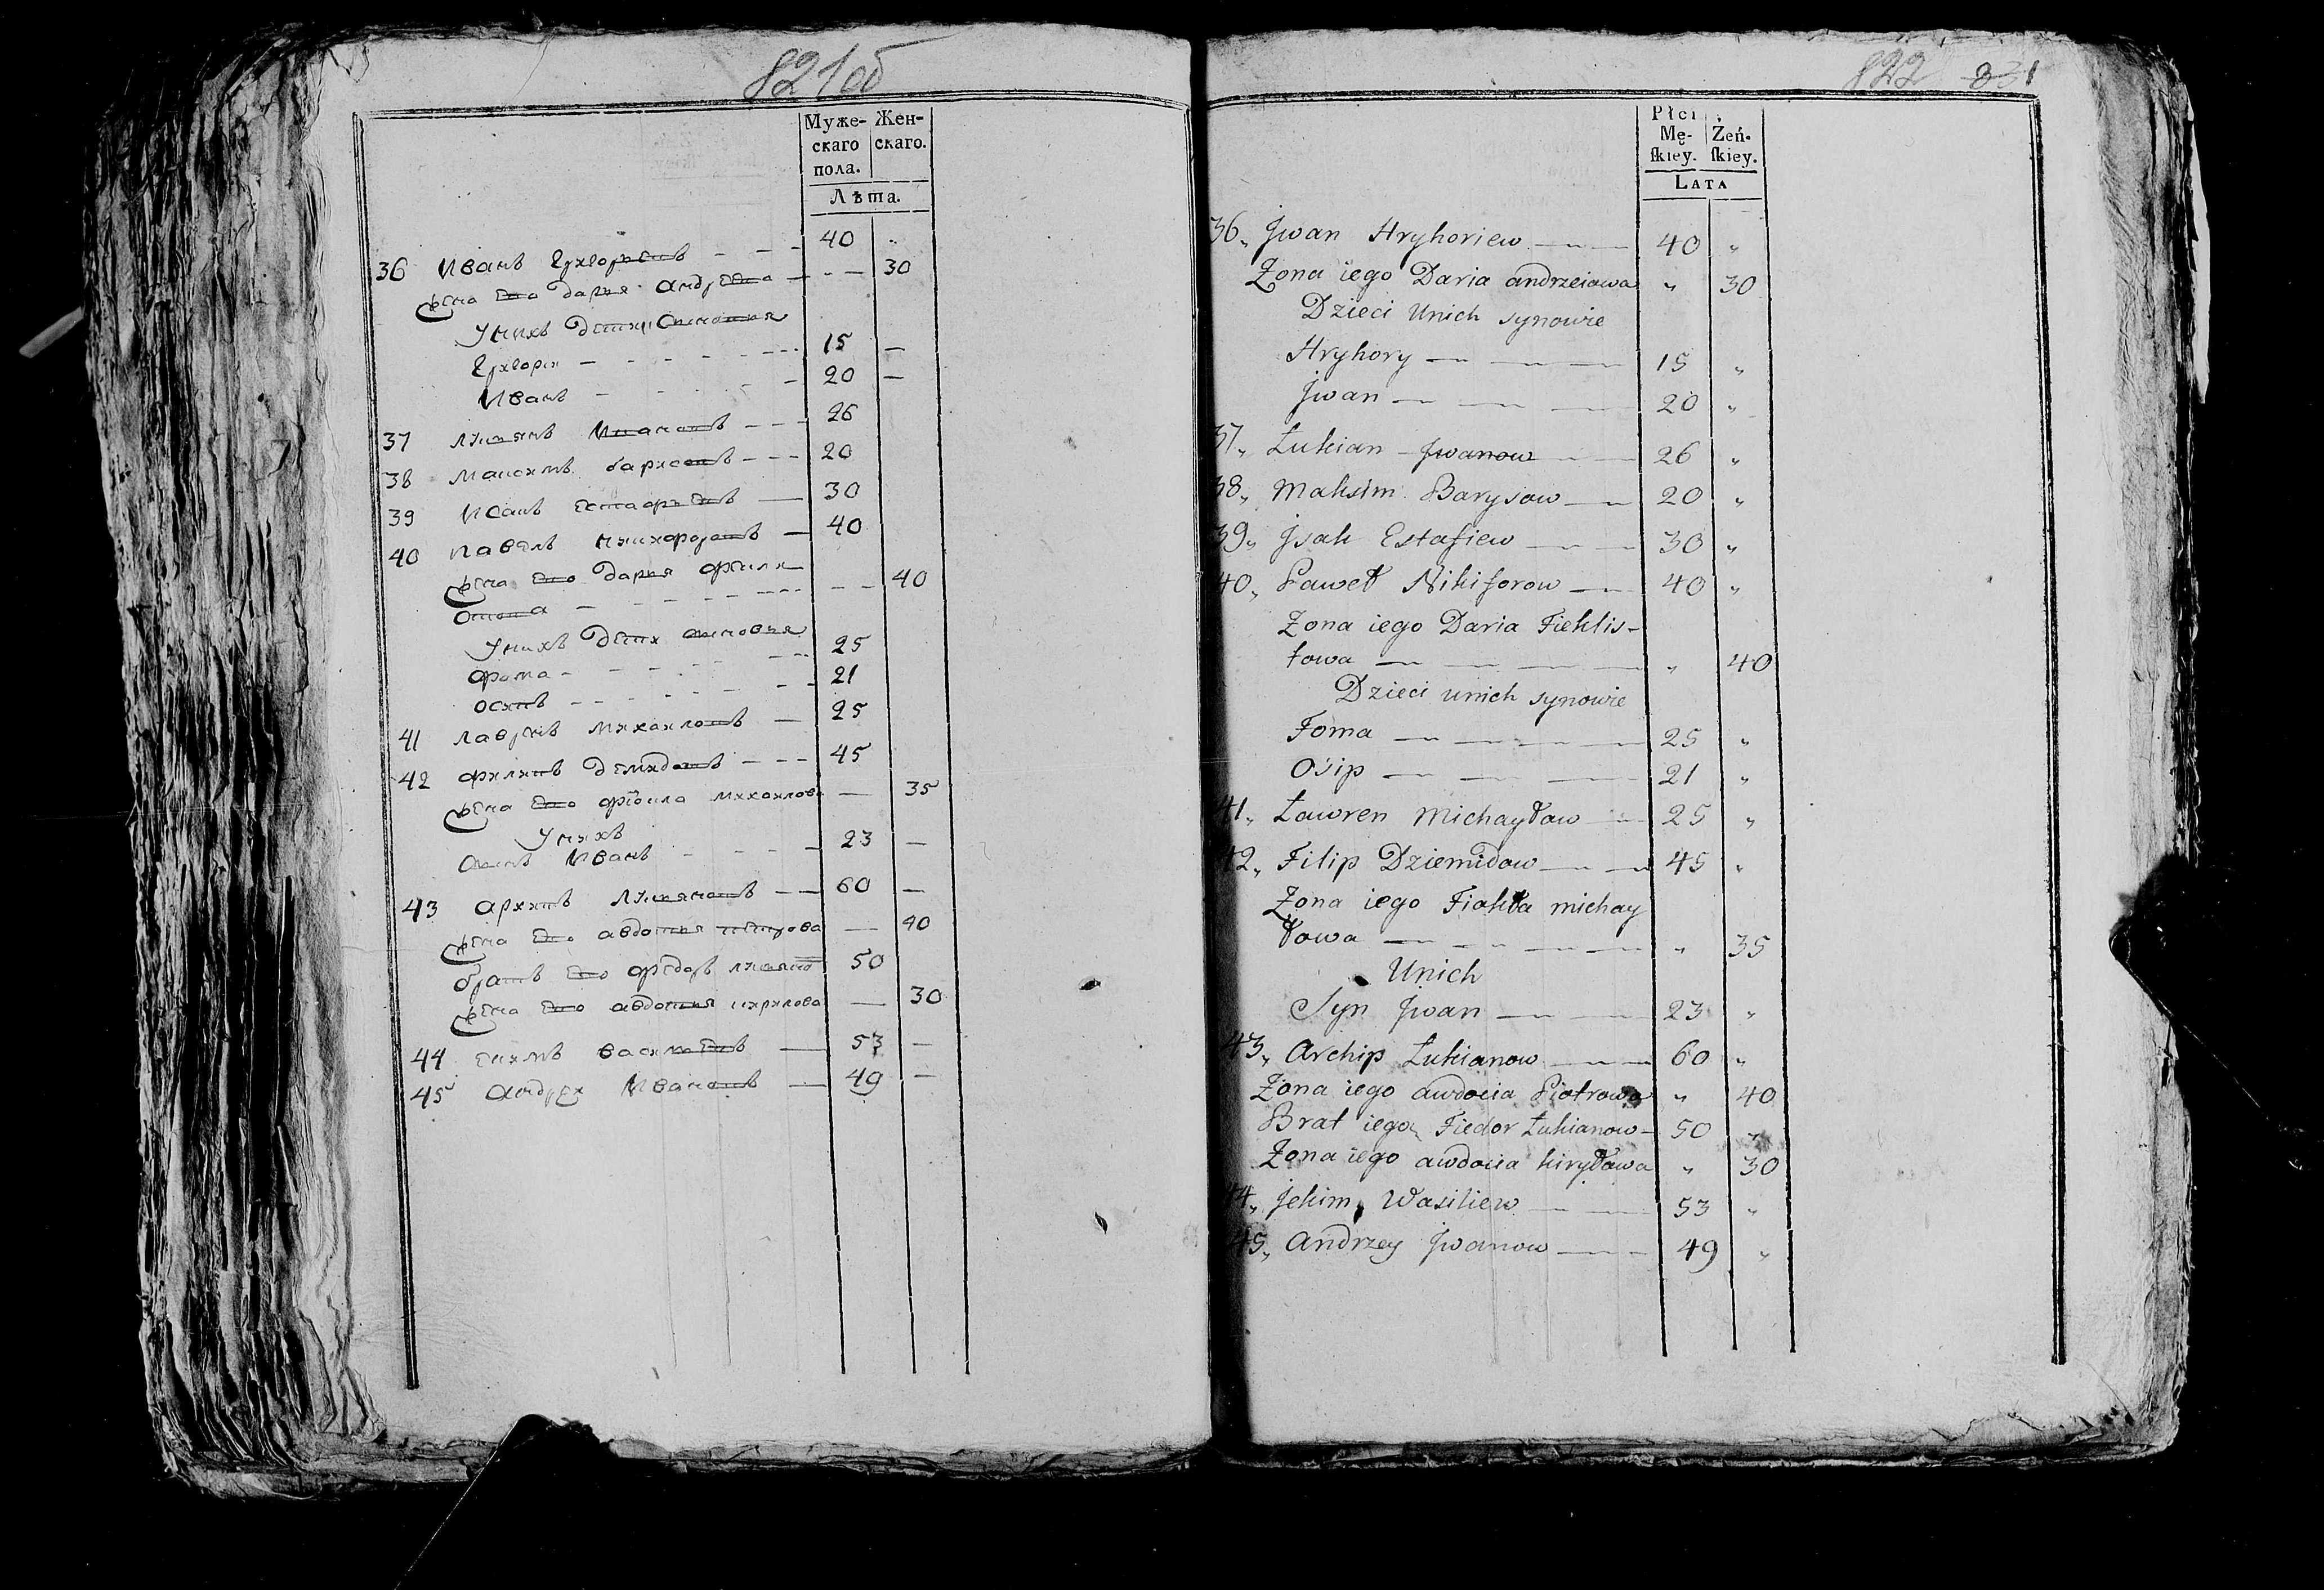 821 об
Муже-
скаго
пола.
Жен-
скаго.
Лѣта.
36 Иванъ Григорьевъ 40
жена Его дарья андрѣева 30
Унихъ дети Сыновья
Григори 15
Иванъ 20
37 лукянъ Ивановъ 26
38 максимъ барисовъ 20
39 Исакъ Естафьевъ 30
40 павелъ никифоровъ 40
жена Его дарья фекли
стова 40
Унихъ дети сыновья
фома 25
осипъ 21
41 лаврѣнъ михаиловъ 25
42 филипъ демидовъ 45
жена Его фіокла михаилова 35
Унихъ
сынъ Иванъ 23
43 архипъ лукяновъ 60
жена Его авдотья петрова 40
братъ Его федоръ лукяно 50
жена Его авдотья кирилова 30
44 екимъ василиевъ 53
45 андреи Ивановъ 49
822 831
Płci
Mę-
ſkiey.
Żeń-
ſkiey.
LATA
36„ Jwan Hryhoriew 40 „
Żona iego Daria andrzeiowa „ 30
Dzieci Unich synowie
Hryhory 15 „
Jwan 20 „
37„ Łukian Jwanow 26 „
38„ Maksim Barysow 20 „
39„ Jsak Estafiew 30 „
40„ Paweł Nikiforow 40 „
Żona iego Daria Fieklis-
towa „ 40
Dzieci unich synowie
Foma 25 „
Osip 21 „
41„ Ławren Michayłow 25 „
42„ Filip Dziemidow 45 „
Żona iego Fiokła michay
łowa „ 35
Unich
Syn Jwan 23 „
43„ Archip Łukianow 60 „
Żona iego awdocia Piotrowa „ 40
Brat iego Fiedor Łukianow 50 „
Żona iego awdocia kiryłowa „ 30
44„ Jekim Wasiliew 53 „
45„ Andrzey Jwanow 49 „